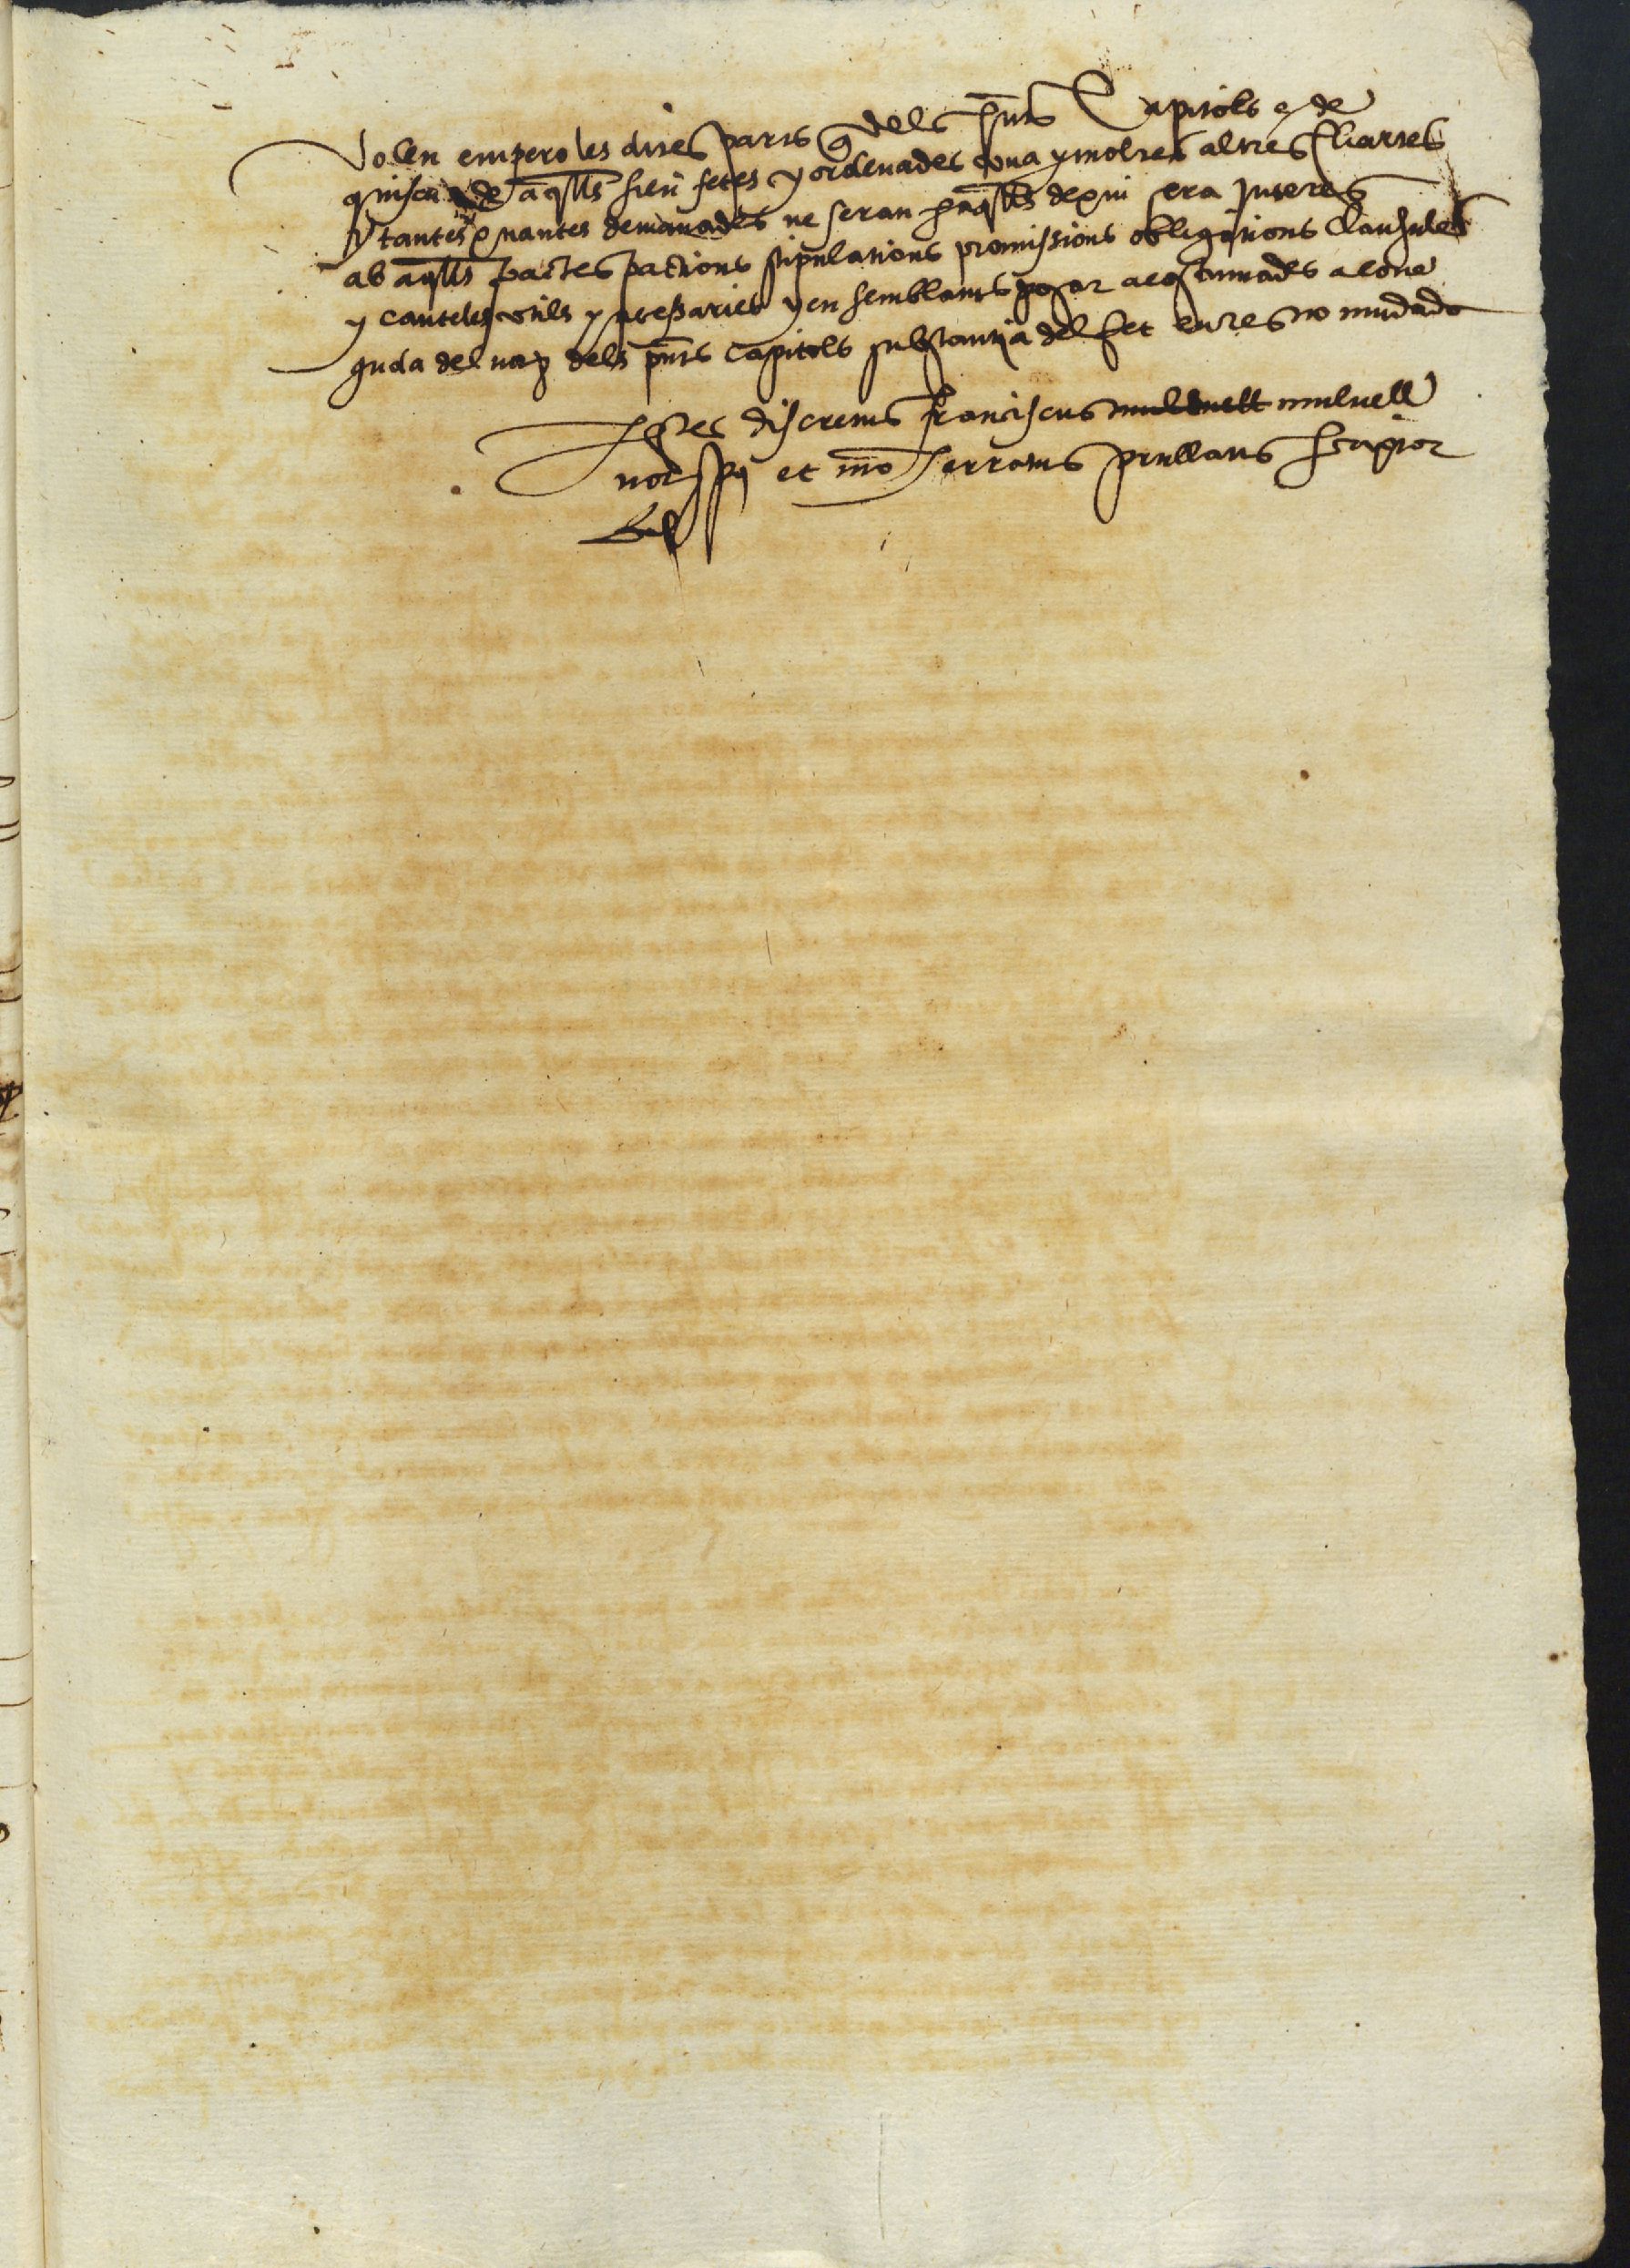 Volen empero les dites parts q̃ dels p̄nts Capitols e de
quiscu de aq̄lls sien fetes y ordenades una y moltes altres Cartes
y tantes quantes demanades ne seran p aq̄lls de qui sera interes
ab aq̄lls pactes pactions stipulations promissions obligations clausules
y cauteles utils y necessaries y en semblants posar acostumades a cone
guda del not dels p̄nts capitols substantia del fet en res no mudada
Testes discretus franciscus mulnell
not et mō serratus prullans scriptor